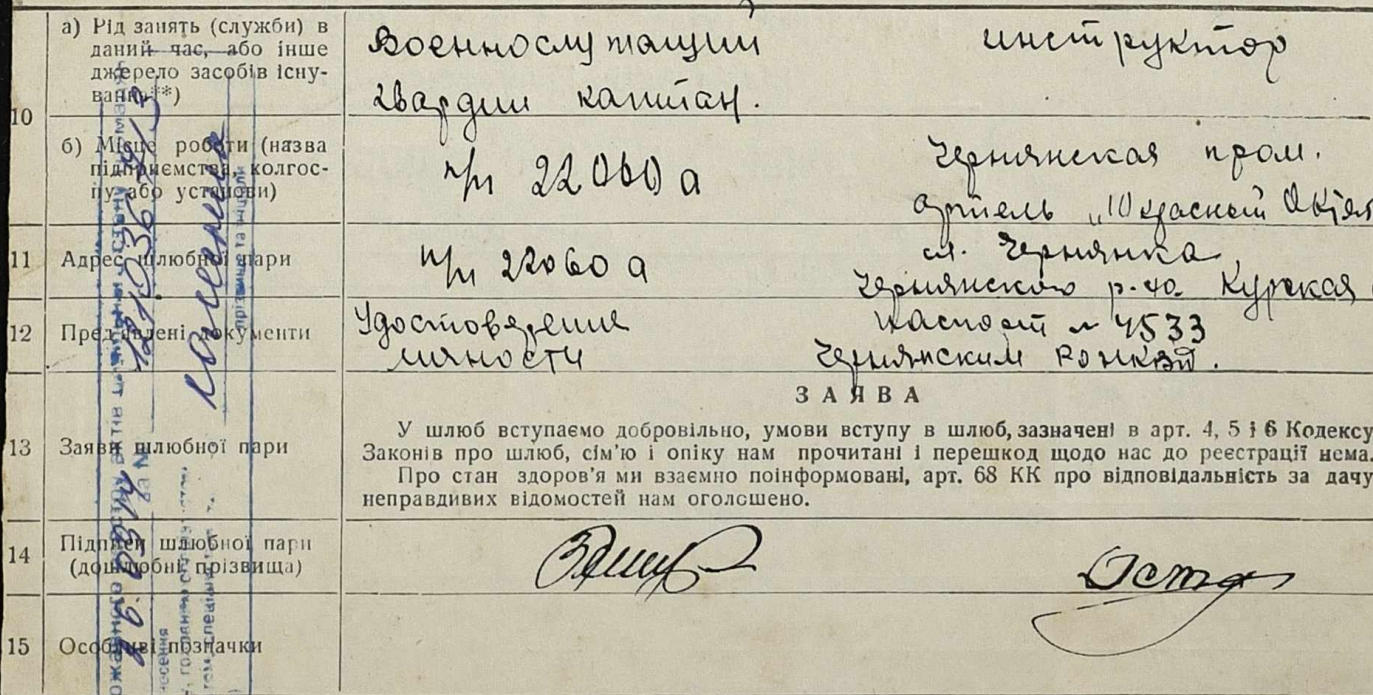 10
а) Рід занять (служби) в
даний час, або інше
джерело засобів існу-
вання**)
Военнослужащий
гвардии капитан.
инструктор
б) Місце роботи (назва
підприємства, колгос-
пу або установи)
п/п 22060 а
Чернянская пром.
артель „10 красный Октяб
11
Адрес шлюбної пари
п/п 22060 а
сл. Чернянка
Чернянского р-на Курская
12
Пред'явлені документи
Удостоверения
личности
паспорт № 4533
Чернянским
13
Заява шлюбної пари
ЗАЯВА
У шлюб вступаємо добровільно, умови вступу в шлюб, зазначені в арт. 4, 5 і 6 Кодексу
Законів про шлюб, сім'ю і опіку нам прочитані і перешкод щодо нас до реєстрації нема.
Про стан здоров'я ми взаємно поінформовані, арт. 68 КК про відповідальність за дачу
неправдивих відомостей нам оголошено.
14
Підписи шлюбної пари
(дошлюбні прізвища)
15
Особливі позначки